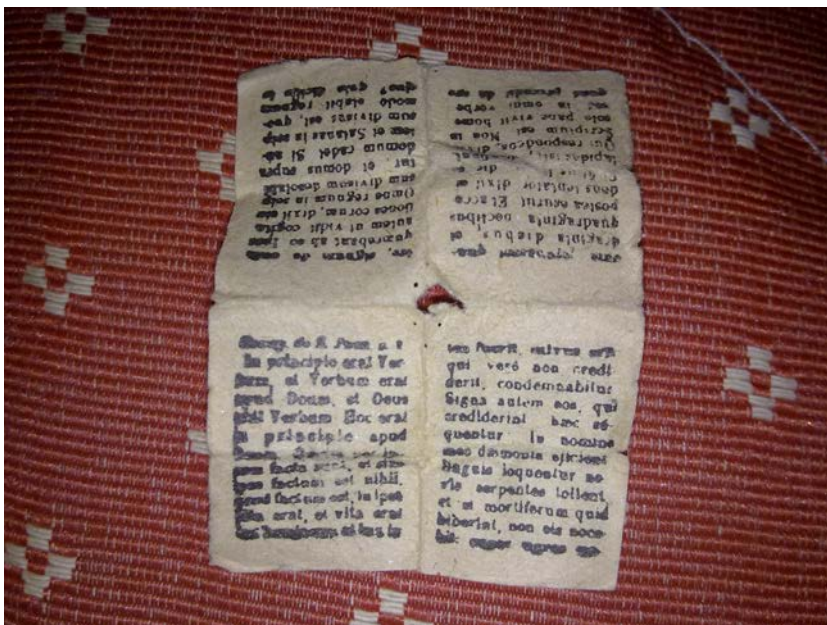 In principio erat Ver-
bum, et Verbum erat
apud Deum, et Deus
erat Verbum Hoc erat
in principio apud
Deum.
facta sunt, et sine
ipso factum est nihil,
quod factum est, in ipso
vita erat, et vita erat
lux hominum et lux in
fuerit, salvus erit
qui veró non credi
derit, condemnabitur
Signa autem eos, qui
crediderint hæc se-
quentur In nomine
meo dæmonia ejicient
linguis loquentur no-
vis serpentes tollent,
et si mortiferum quid
biberint, non eis noce-
bit: super ægros
qua-
draginta diebus, et
quadraginta noctibus
postea esuriit Et acce
dens tentator dixit ei
dic
lapides isti
Qui respondens, dixit
Scriptum est Non in
solo pane vivit homo
sed in omni verbo
quod procedit de ore
signum de cœlo
quærebant ab eo Ipse
autem ut vidit cogita
eorum, dixit eis
Omne regnum in seip
sum divisum desolabi
tur, et domus supra
domum cadet Si au-
tem et Satanas in seip
sum divisus est, quo-
modo stabit regnum
quia dicitis in